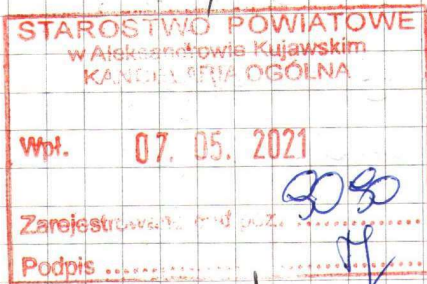 STAROSTWO POWIATOWE
w Aleksandrowie Kujawskim
KANCELARIA OGÓLNA
Wpł. 07. 05. 2021
Zarejestrowano pod poz. 9090
Podpis